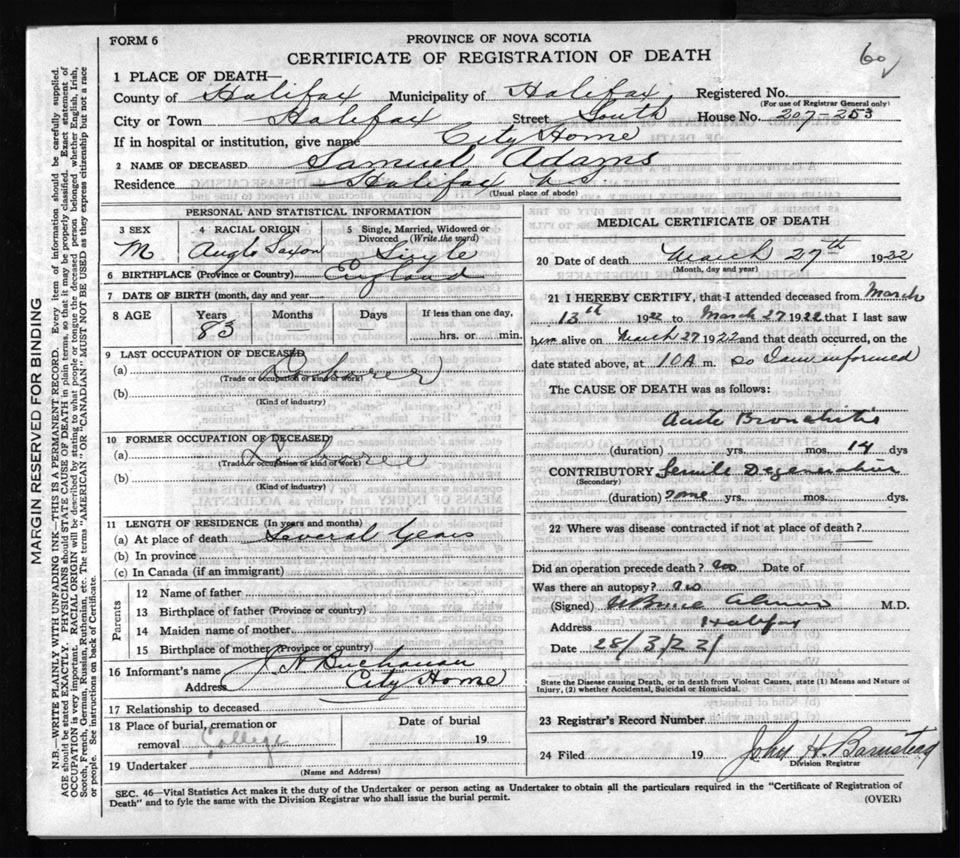 FORM 6
PROVINCE OF NOVA SCOTIA
CERTIFICATE OF REGISTRATION OF DEATH
60
1 PLACE OF DEATH—
County of Halifax Municipality of Halifax Registered No.
(For use of Registrar General only)
City or Town Halifax Street South House No. 207-253
If in hospital or institution, give name City Home
2 NAME OF DECEASED Samuel Adams
Residence Halifax N S
(Usual place of abode)
PERSONAL AND STATISTICAL INFORMATION
3 SEX
M
4 RACIAL ORIGIN
Anglo Saxon
5 Single, Married, Widowed or Divorced (Write the word)
Single
6 BIRTHPLACE (Province or Country) England
7 DATE OF BIRTH (month, day and year)
8 AGE Years Months Days If less than one day,
83 — hrs. or min.
9 LAST OCCUPATION OF DECEASED
(a) Laborer
(Trade or occupation or kind of work)
(b)
(Kind of industry)
10 FORMER OCCUPATION OF DECEASED
(a) Laborer
(Trade or occupation or kind of work)
(b)
(Kind of industry)
11 LENGTH OF RESIDENCE (In years and months)
(a) At place of death Several Years
(b) In province
(c) In Canada (if an immigrant)
Parents
12 Name of father
13 Birthplace of father (Province or country)
14 Maiden name of mother
15 Birthplace of mother (Province or country)
16 Informant's name J. H Buchanan
Address City Home
17 Relationship to deceased
18 Place of burial, cremation or removal College
Date of burial
19
19 Undertaker
(Name and Address)
MEDICAL CERTIFICATE OF DEATH
20 Date of death March 27th 1922
(Month, day and year)
21 I HEREBY CERTIFY, that I attended deceased from March
13th 1922 to March 27 1922 that I last saw
him alive on March 27 1922 and that death occurred, on the
date stated above, at 10 A m. so I am informed
The CAUSE OF DEATH was as follows:
Acute Bronchitis
(duration) yrs. mos. 14 dys
CONTRIBUTORY Senile Degeneration
(Secondary)
(duration) some yrs. mos. dys.
22 Where was disease contracted if not at place of death? —
Did an operation precede death? no Date of
Was there an autopsy? no
(Signed) M.D.
Address Halifax
Date 28/3/22/
State the Disease causing Death, or in death from Violent Causes, state (1) Means and Nature of
Injury, (2) whether Accidental, Suicidal or Homicidal.
23 Registrar's Record Number
24 Filed 19 John H. Barnstead
Division Registrar
SEC. 46—Vital Statistics Act makes it the duty of the Undertaker or person acting as Undertaker to obtain all the particulars required in the "Certificate of Registration of
Death" and to fyle the same with the Division Registrar who shall issue the burial permit.
(OVER)
MARGIN RESERVED FOR BINDING
N.B.—WRITE PLAINLY WITH UNFADING INK—THIS IS A PERMANENT RECORD. Every item of information should be carefully supplied.
AGE should be stated EXACTLY. PHYSICIANS should STATE CAUSE OF DEATH in plain terms, so that it may be properly classified. Exact statement of
OCCUPATION is very important. RACIAL ORIGIN will be described by stating to what people or tongue the deceased person belonged, whether English, Irish,
Scotch, French, German, Russian, Ruthenian, etc. The terms "AMERICAN" OR "CANADIAN" MUST NOT BE USED as they express citizenship but not a race
or people. See instructions on back of Certificate.